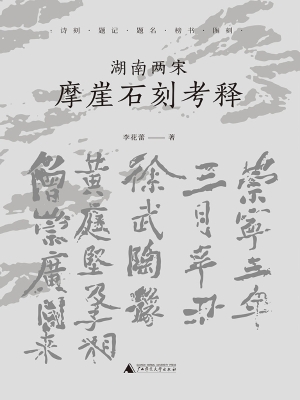 · 诗刻 · 题记 · 题名 · 榜书 ·
湖南两宋
摩崖石刻考释
李花蕾 —— 著
崇寧三年
三月辛丑
徐武陶豫
黃庭堅及子相
僧崇廣同來
广西师范大学出版社